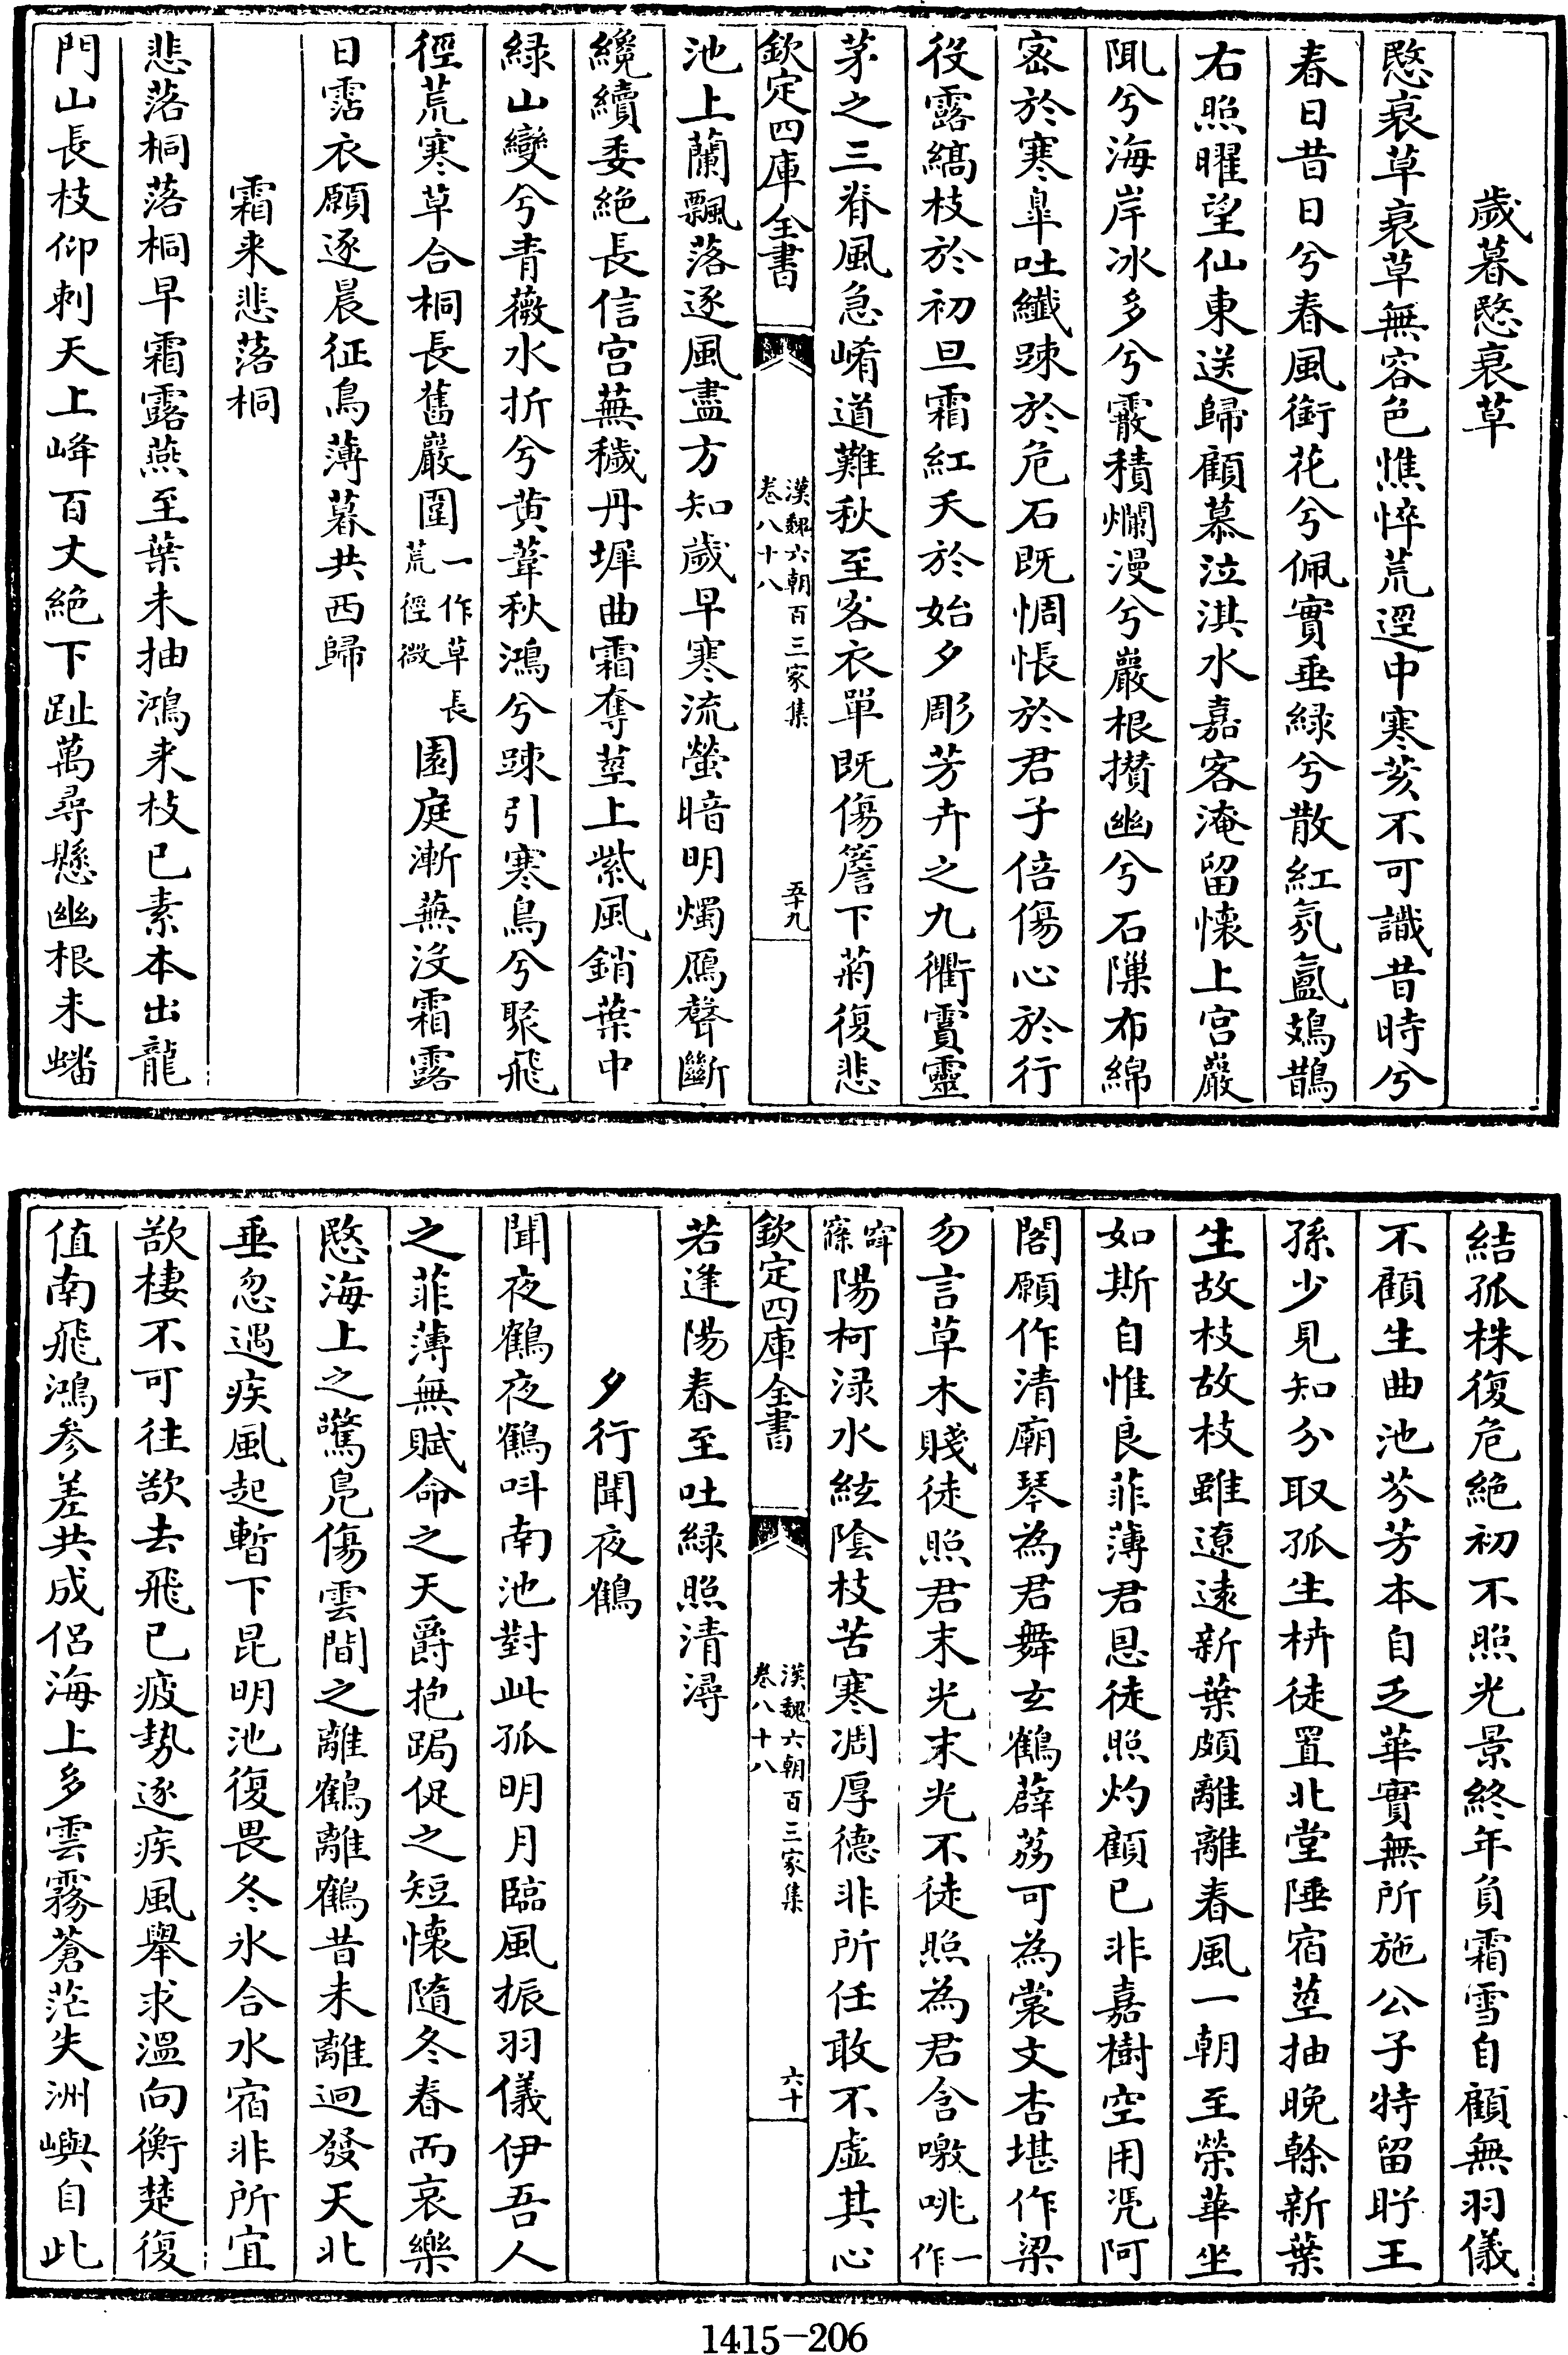 歲暮愍衰草
愍衰草衰草無容色憔悴荒逕中寒荄不可識昔時兮
春日昔日兮春風銜花兮佩實垂緑兮散紅氛氳鳷鵲
右照曜望仙東送歸顧慕泣淇水嘉客淹留懷上宫巖
陬兮海岸冰多兮霰積爛漫兮巖根攅幽兮石隟布綿
宻於寒臯吐纎疎於危石既惆悵於君子倍傷心於行
役露縞枝於初旦霜紅天於始夕彫芳卉之九衢霣靈
茅之三脊風急崤道難秋至客衣單既傷簷下菊復悲
欽定四庫全書
漢魏六朝百三家集
卷八十八
五十九
池上蘭飄落逐風盡方知歲早寒流螢暗明燭鴈聲斷
纔續委絶長信宫蕪穢丹墀曲霜奪莖上紫風銷葉中
緑山變兮青薇水折兮黄葦秋鴻兮疎引寒鳥兮聚飛
徑荒寒草合桐長舊巖圍一作草長荒徑微園庭漸蕪没霜露
日霑衣願逐晨征鳥薄暮共西歸
霜来悲落桐
悲落桐落桐早霜露燕至葉未抽鴻来枝已素本出龍
門山長枝仰刺天上峰百丈絶下趾萬尋懸幽根未蟠
結孤株復危絶初不照光景終年負霜雪自顧無羽儀
不顧生曲池芬芳本自乏華實無所施公子特留眄王
孫少見知分取孤生枿徒置北堂陲宿莖抽晚榦新葉
生故枝故枝雖遼逺新葉頗離離春風一朝至榮華坐
如斯自惟良菲薄君恩徒照灼顧已非嘉樹空用憑阿
閣願作清廟琴為君舞玄鶴薜荔可為裳文杏堪作梁
勿言草木賤徒照君末光末光不徒照為君含噭咷一作
寍寱陽柯渌水絃陰枝苦寒凋厚德非所任敢不虚其心
欽定四庫全書
漢魏六朝百三家集
卷八十八
六十
若逢陽春至吐緑照清潯
夕行聞夜鶴
聞夜鶴夜鶴呌南池對此孤明月臨風振羽儀伊吾人
之菲薄無賦命之天爵抱跼促之短懷隨冬春而哀樂
愍海上之驚鳬傷雲間之離鶴離鶴昔未離迥發天北
垂忽遇疾風起暫下昆明池復畏冬氷合水宿非所宜
欲棲不可往欲去飛已疲勢逐疾風舉求溫向衡楚復
值南飛鴻參差共成侣海上多雲霧蒼茫失洲嶼自此
1415-206